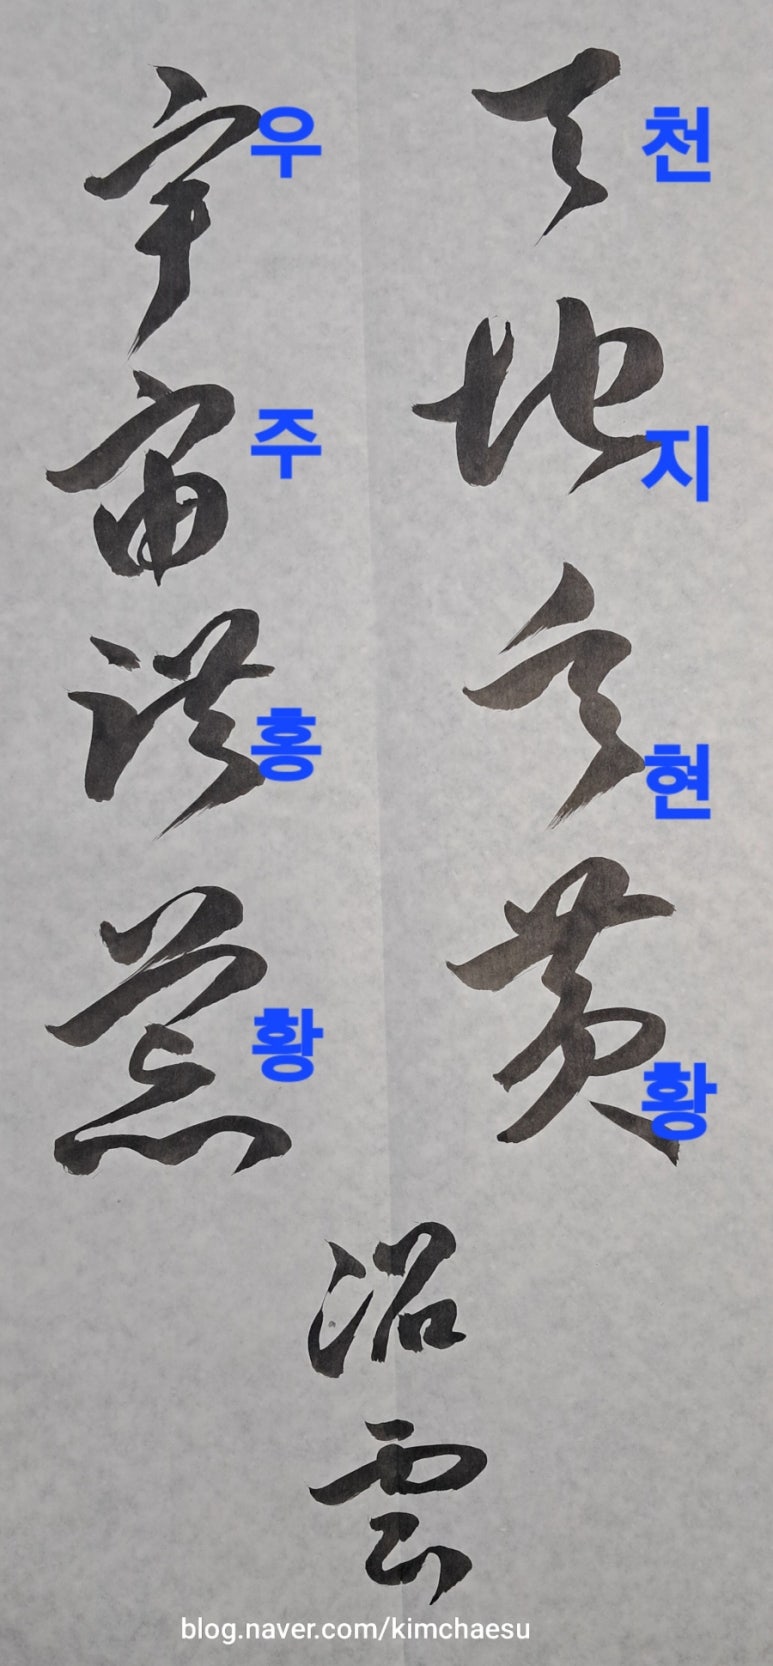 天地玄黃
천지현황
宇宙洪荒
우주홍황
沼雲
blog.naver.com/kimchaesu